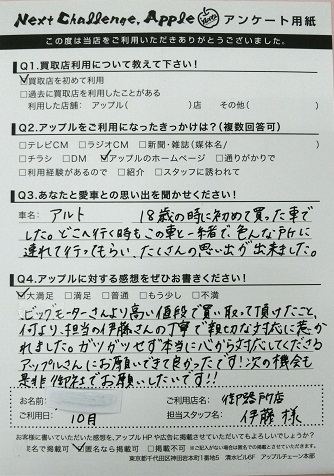 Next Challenge, Apple アンケート用紙
この度は当店をご利用いただきありがとうございました。
Q1.買取店利用について教えて下さい!
☑買取店を初めて利用
□過去に買取店を利用したことがある
利用した店舗： アップル( )店 その他( )
Q2.アップルをご利用になったきっかけは?(複数回答可)
□テレビCM □ラジオCM □新聞・雑誌(媒体名/ )
□チラシ □DM ☑アップルのホームページ □通りがかりで
□利用経験があるので □紹介 □スタッフに誘われて
Q3.あなたと愛車との思い出を聞かせください!
車名： アルト 18歳の時に初めて買った車で
した。どこへ行く時もこの車と一緒で、色んな所に
連れて行ってもらい、たくさんの思い出が出来ました。
Q4.アップルに対する感想をぜひお書きください!
☑大満足 □満足 □普通 □もう少し □不満
ビッグモーターさんより高い値段で買い取って頂けたこと、
何より、担当の伊藤さんの丁寧で親切な対応に惹
かれました。ガツガツせず本当に心から対応してくださる
アップルさんにお願いできて良かったです!次の機会も
是非御社でお願いしたいです!!
お名前： ご利用店名：
ご利用日： 10月 担当スタッフ名： 伊藤 様
お客様に書いていただいた感想を、アップルHPや広告に掲載させていただいてもよろしいでしょうか?
名で掲載可 ☑匿名なら掲載可 □掲載不可
東京都千代田区神田岩本町1番地5 清水ビル6F アップルチェーン本部